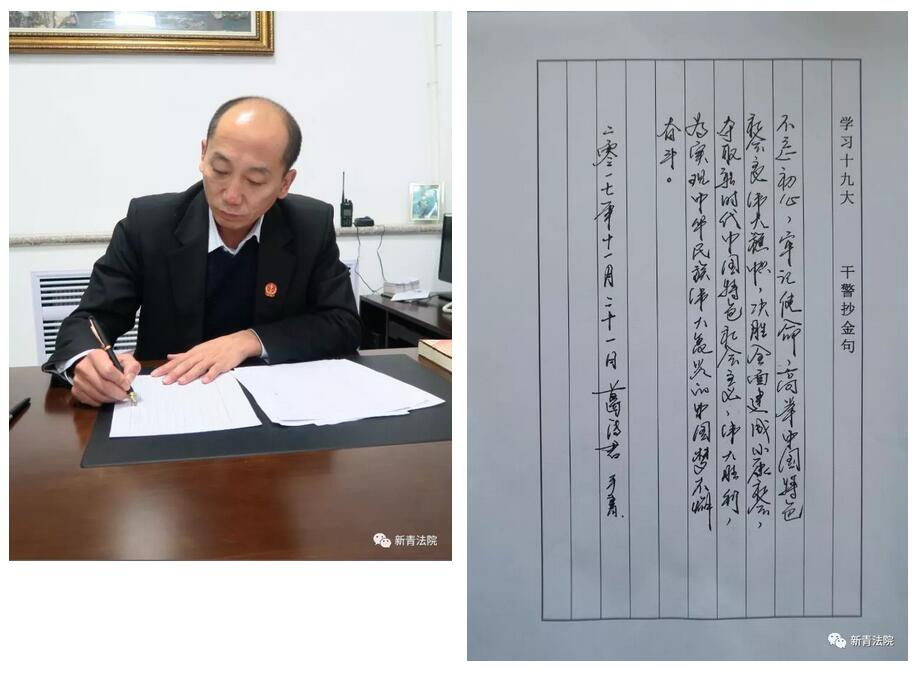 学习十九大 干警抄金句
不忘初心，牢记使命，高举中国特色
社会主义伟大旗帜，决胜全面建成小康社会，
夺取新时代中国特色社会主义，伟大胜利，
为实现中华民族伟大复兴的中国梦不懈
奋斗。
二零一七年十一月二十一日 葛
新青法院
新青法院